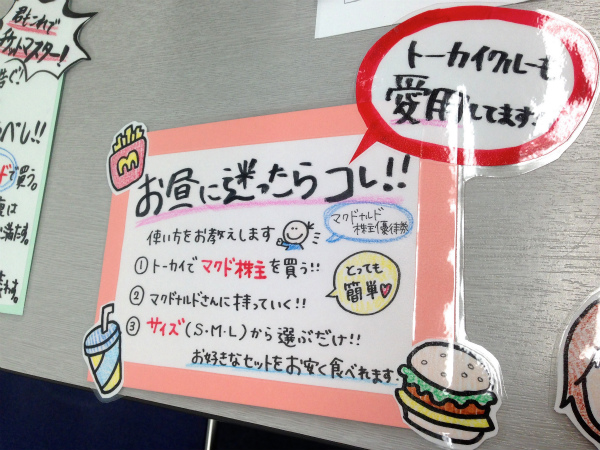 君もこれで
チケットマスター!
トーカイクルーも
愛用してます。
お昼に迷ったらコレ!!
使い方をお教えします
マクドナルド
株主優待券
①トーカイでマクド株主を買う!!
②マクドナルドさんに持っていく!!
③サイズ(S・M・L)から選ぶだけ!!
とっても
簡単
お好きなセットをお安く食べれます。
で買う。